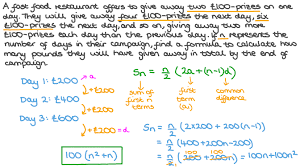 A fast food restaurant offers to give away two £100-prizes on one
day. They will give away four £100-prizes the next day, six
£100-prizes the next day, and so on, giving away two more
£100-prizes each day than the previous day. If n represents the
number of days in their campaign, find a formula to calculate how
many pounds they will have given away in total by the end of
campaign.
Day 1: £200 → a
+£200
Day 2: £400
+£200 = d
Day 3: £600
100(n²+n)
Sn = n/2 (2a+(n-1)d)
sum of first n terms
first term (a)
common difference
Sn = n/2 (2×200 + 200(n-1))
= n/2 (400+200n-200)
100 100
= n/2 (200+200n) = 100n+100n²